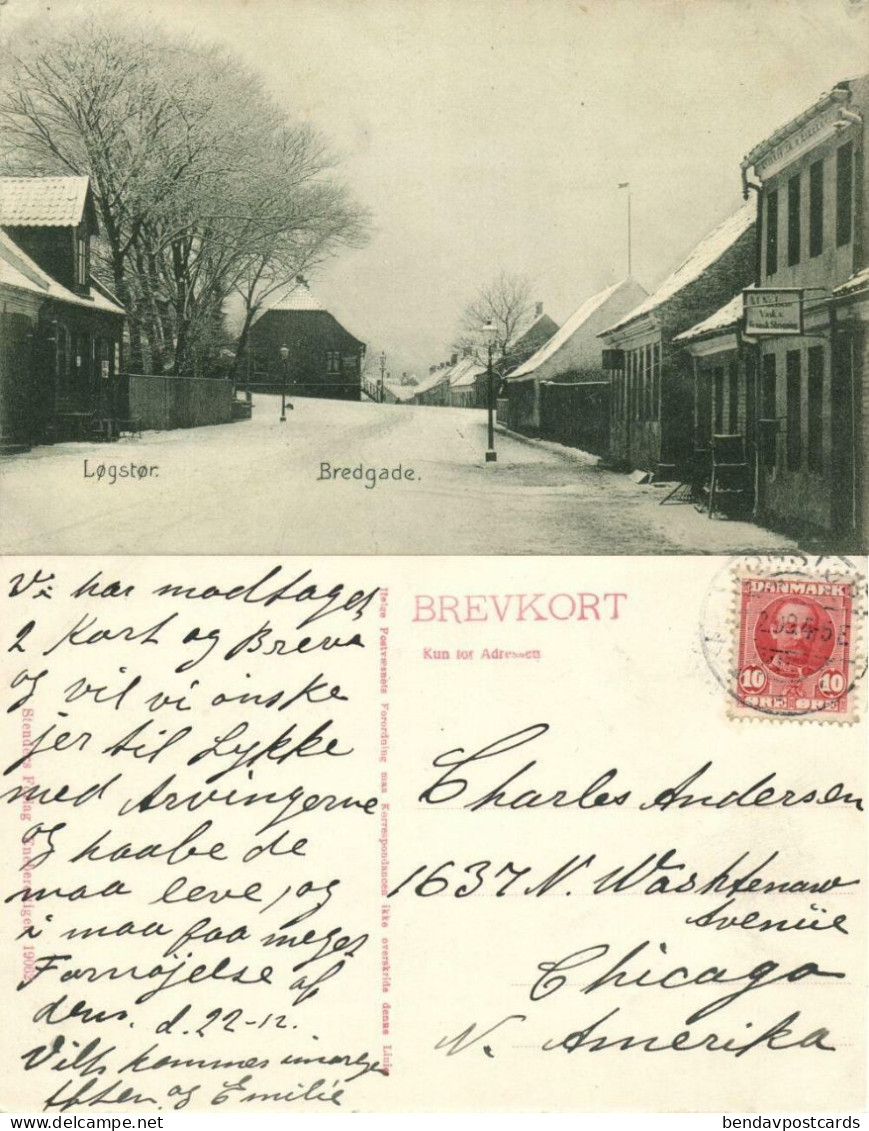 Løgstør.
Bredgade.
Vi har modtaget
2 Kort og Breve
og vil vi ønske
jer til Lykke
med Arvingerne
og haabe de
maa leve, og
i maa faa meget
Fornøjelse af
dem. d. 22-12.
kommer imorgen
Aften og Emilie
Helge Postvæsnets Forordning maa Korrespondancen ikke overskride denne Linie
Stenders Forlag
BREVKORT
Kun for Adressen
DANMARK
10 10
ØRE ØRE
Charles Andersen
1637 N. Washtenaw
Avenüe
Chicago
N. Amerika
bendavpostcards